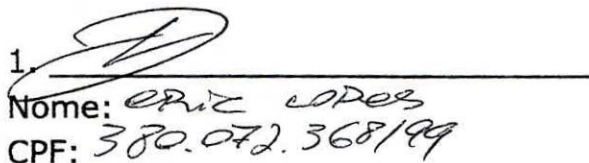 1.
Nome: eric lopes
CPF: 380.072.368/99